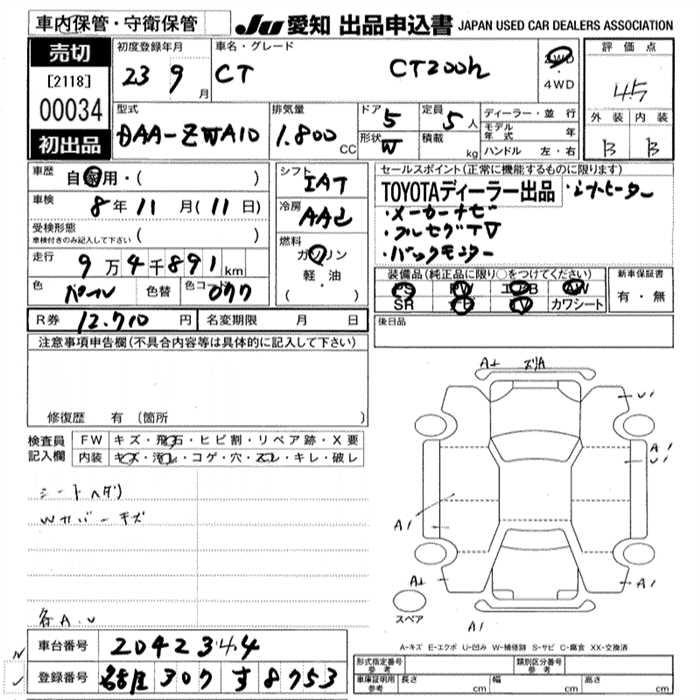 車内保管・守衛保管
JU 愛知 出品申込書 JAPAN USED CAR DEALERS ASSOCIATION
売切
[2118]
00034
初出品
初度登録年月
23 9 月
車名・グレード
CT CT200h
2WD
・
4WD
評価点
4.5
外装 内装
B B
型式
DAA-ZWA10
排気量
1.800 CC
ドア 5
形状 W
定員 5 人
積載 kg
ディーラー・並行
モデル年式 年
ハンドル 左・右
車歴 自家用・( )
車検 8年 11月(11日)
受検形態
車検付きのみ記入して下さい ( )
走行 9万4千891km
色 パール 色替 色コード 077
シフト
IAT
冷房
AAC
燃料
ガソリン
軽・油
( ・ )
セールスポイント(正常に機能するものに限ります)
TOYOTAディーラー出品 ・シートヒーター
・メーカーナビ
・フルセグTV
・バックモニター
装備品(純正品に限り○をつけてください)
PS PW エアB AW
SR ナビ TV カワシート
新車保証書
有・無
R券 12.710 円 名変期限 月 日
後日品
注意事項申告欄(不具合内容等は具体的に記入して下さい)
修復歴 有 (箇所 )
検査員
記入欄
FW キズ・飛石・ヒビ割・リペア跡・X要
内装 キズ・汚レ・コゲ・穴・スレ・キレ・破レ
シートヘタリ
Wカバーキズ
各A.U
A1
ズリA
U1
A1
U1
A1
A1
A1
スペア
A-キズ E-エクボ U-凹み W-補修跡 S-サビ C-腐食 XX-交換済
車台番号 2042344
登録番号 名古屋 307 す 8753
形式指定番号
参考
類別区分番号
参考
車庫証明用
参考
長さ cm 幅 cm 高さ cm